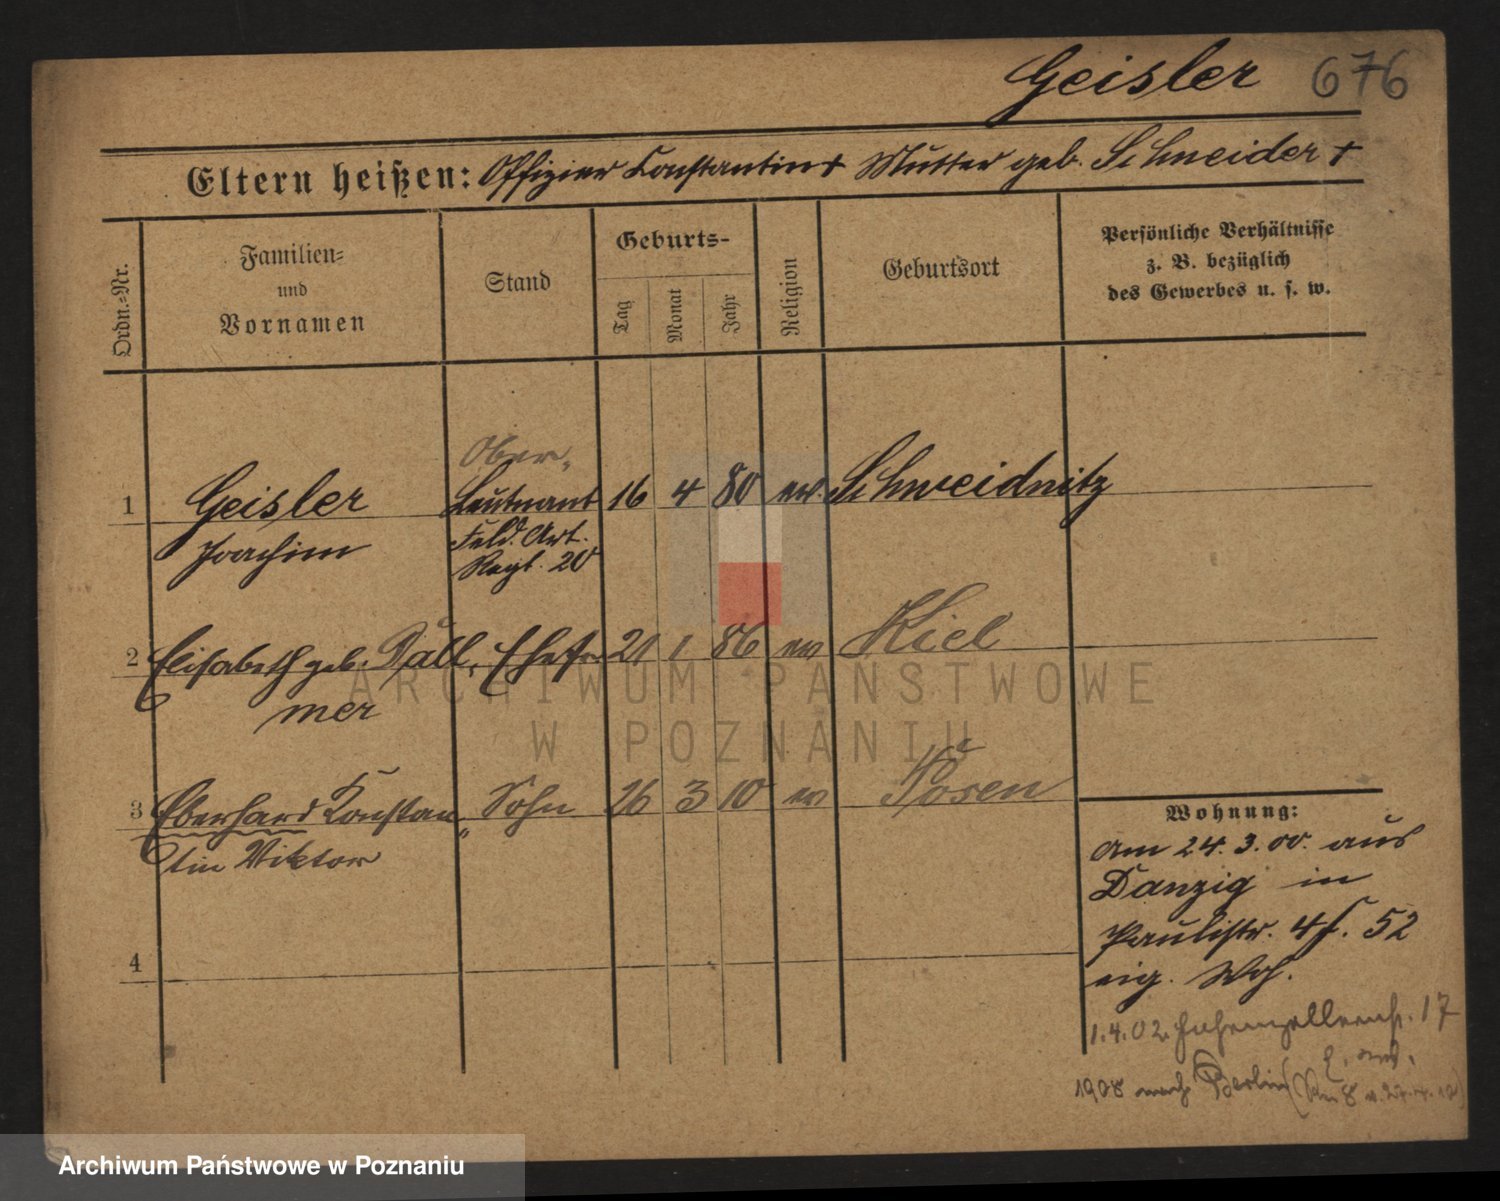 Geisler 676
Eltern heißen: Offizier Constantin + Mutter geb. Schneider +
Ordn.-Nr.
Familien-
und
Vornamen
Stand
Geburts-
Tag
Monat
Jahr
Religion
Geburtsort
Persönliche Verhältnisse
z. B. bezüglich
des Gewerbes u. s. w.
Ober-
1 Geisler Leutnant 16 4 80 ev. Schweidnitz
Joachim Feld. Art.
Regt. 20
2 Elisabeth geb. Päll- Ehefr. 21 1 86 ev Kiel
mer
3 Eberhard Konstan- Sohn 26 3 10 ev Posen
tin Viktor
4
Wohnung:
Am 24. 3. 00. aus
Danzig in
Paulistr. 4 f. 52
eig. Woh.
1.4.02. Hohenzollernstr. 17
1908 nach Berlin
ARCHIWUM PAŃSTWOWE
W POZNANIU
Archiwum Państwowe w Poznaniu